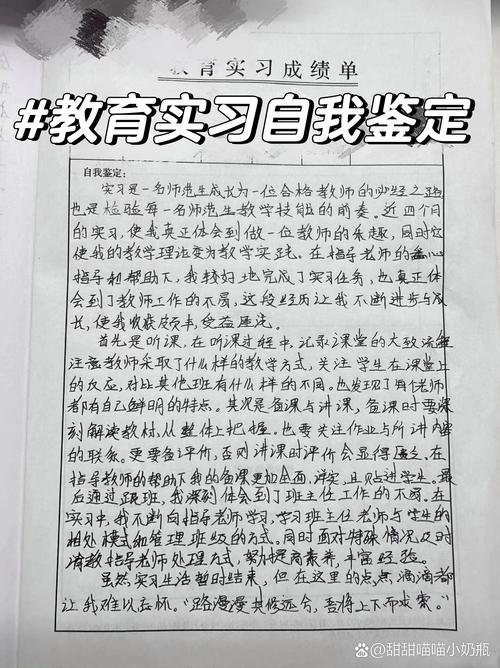 教育实习成绩单
#教育实习自我鉴定
自我鉴定:
实习是一名师范生成长为一位合格教师的必经之路
也是检验每一名师范生教学技能的前奏。近四个月
的实习,使我真正体会到做一位教师的乐趣,同时它
使我的教学理论变为教学实践。在指导老师的悉心
指导和帮助下,我较好地完成了实习任务,也真正体
会到了教师工作的不易。这段经历让我不断进步与成
长,使我收获颇丰,受益匪浅。
首先是听课,在听课过程中,记录课堂的大致流程
注意教师采取了什么样的教学方式,关注学生在课堂上
的反应,对比其他班有什么样的不同。也发现了每位老师
都有自己鲜明的特点。其次是备课与讲课,备课时要深
刻解读教材,从整体上把握。也要关注作业与所讲内容
的联系。更要备评价,否则讲课时评价会显得匮乏。在
指导老师的帮助下我的备课更加全面,详实,且贴近学生。最
后通过跟班,我深刻体会到了班主任工作的不易。在
实习中,我不断向指导老师学习,学习班主任老师与学生的
相处模式和管理班级的方式。同时面对特殊情况,及时
请教指导老师处理方式,努力提高素养,丰富经验。
虽然实习生活暂时结束,但在这里的点点滴滴都
让我难以忘怀。“路漫漫其修远兮,吾将上下而求索。”
@甜甜喵喵小奶瓶